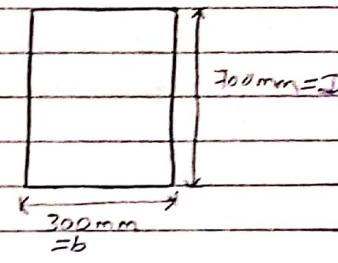 700mm=D
300mm
=b